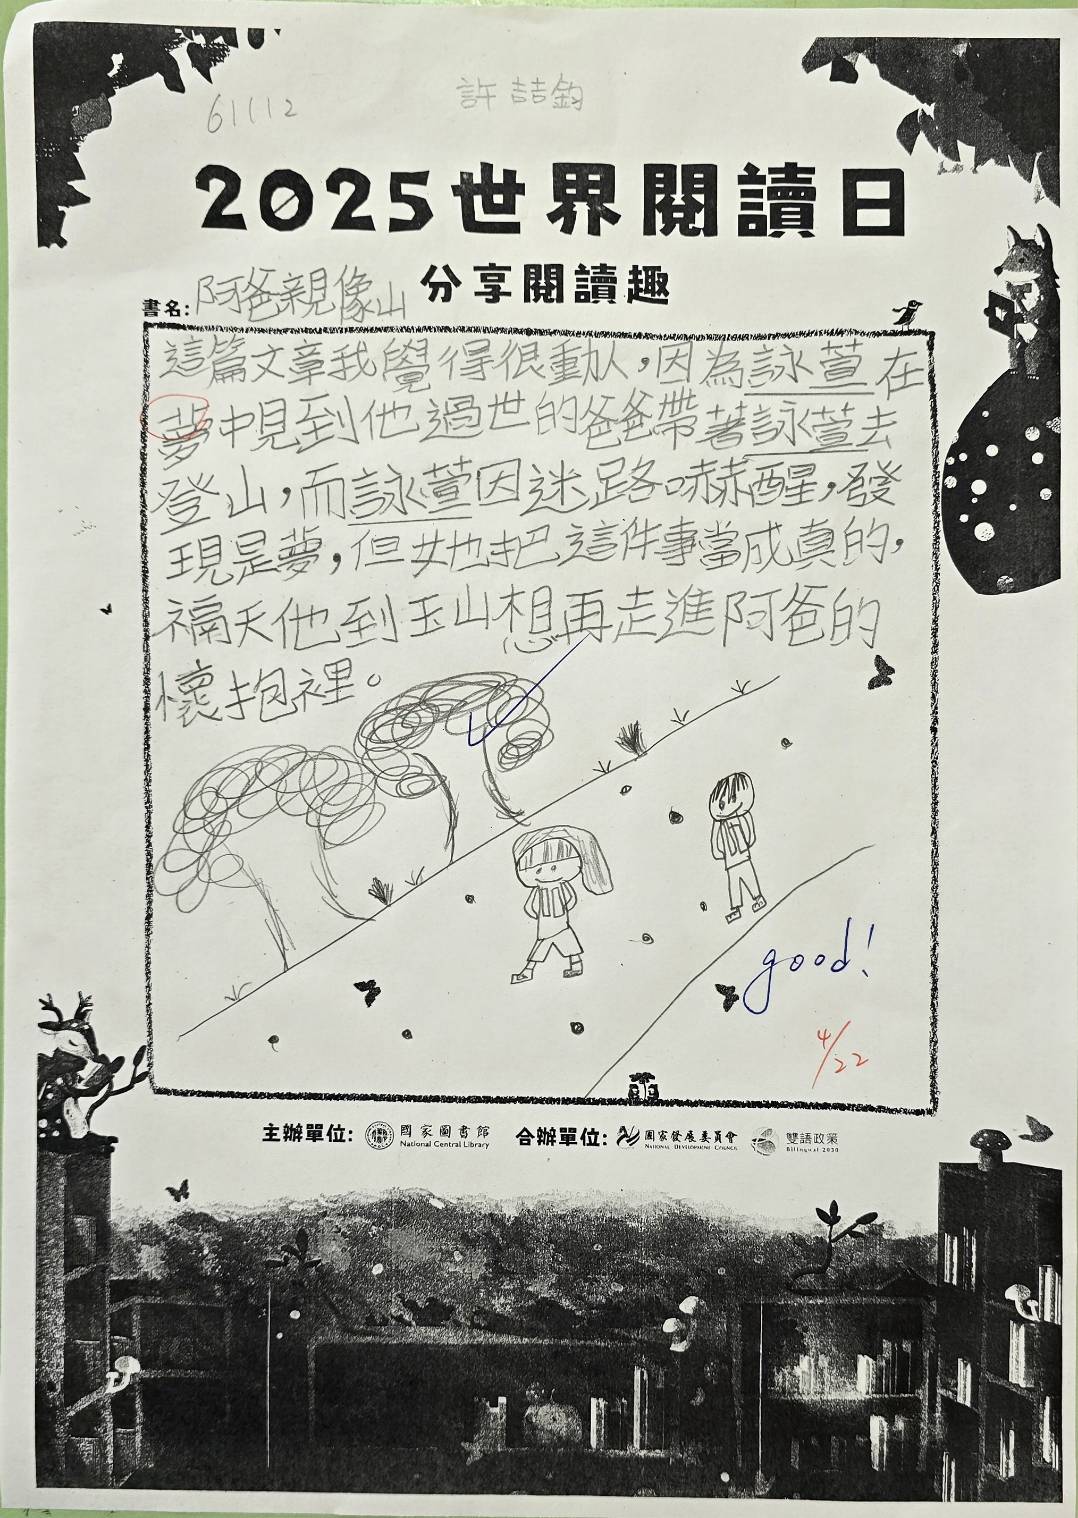 61112
許喆鈞
2025世界閱讀日
分享閱讀趣
書名:阿爸親像山
這篇文章我覺得很動人,因為詠萱在
夢中見到他過世的爸爸帶著詠萱去
登山,而詠萱因迷路嚇醒,發
現是夢,但她把這件事當成真的,
天他到玉山想再走進阿爸的
懷抱裡。
good!
4/22
主辦單位:
國家圖書館
National Central Library
合辦單位:
國家發展委員會
NATIONAL DEVELOPMENT COUNCIL
雙語政策
Bilingual 2030